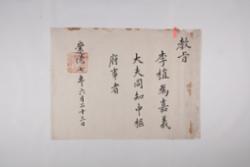 教旨
李爲嘉義
大夫同知中樞
府事者
崇德七年六月二十三日